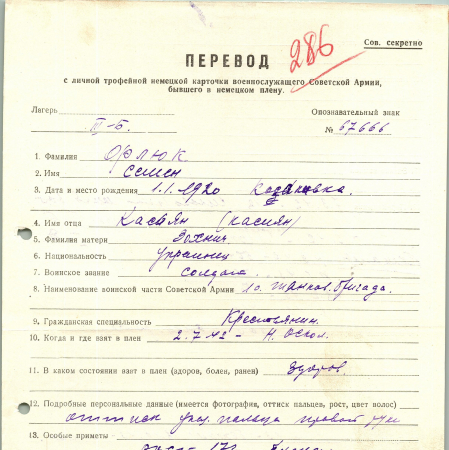 286
Сов. секретно
ПЕРЕВОД
с личной трофейной немецкой карточки военнослужащего Советской Армии,
бывшего в немецком плену.
Лагерь II-Б.
Опознавательный знак
№ 67666
1. Фамилия Орлюк
2. Имя Семен
3. Дата и место рождения 1.1.1920 Козаковка.
4. Имя отца Касьян (Касиян)
5. Фамилия матери
6. Национальность украинец
7. Воинское звание солдат
8. Наименование воинской части Советской Армии 10. танков. бригада.
9. Гражданская специальность Крестьянин.
10. Когда и где взят в плен 2.7.42 - Н. Оскол.
11. В каком состоянии взят в плен (здоров, болен, ранен) здоров
12. Подробные персональные данные (имеется фотография, оттиск пальцев, рост, цвет волос)
оттиск указ. пальца правой руки
13. Особые приметы -
рост 172